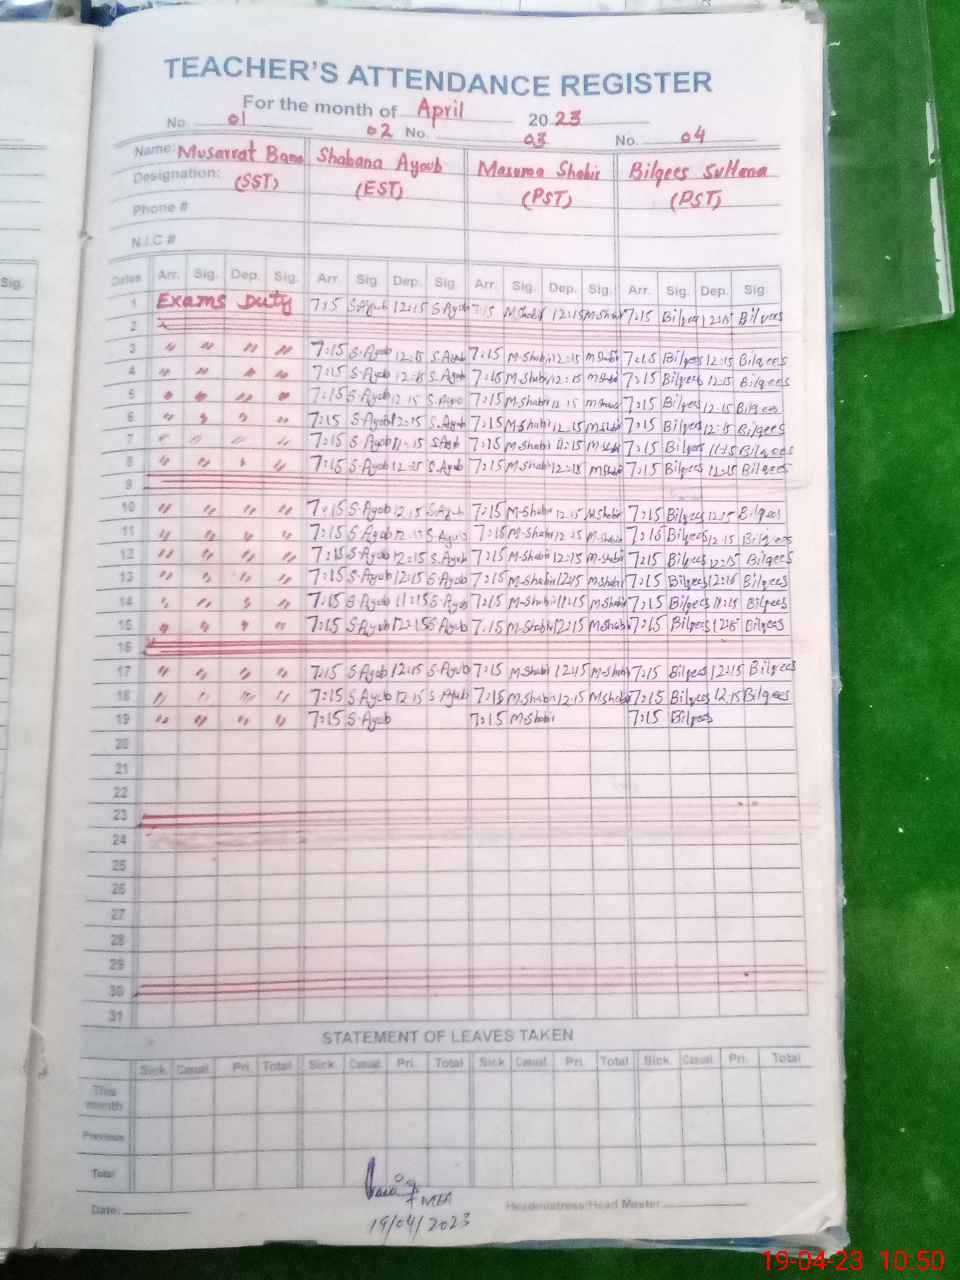 TEACHER'S ATTENDANCE REGISTER
For the month of April 2023
No. 01 02 No. 03 No. 04
Name: Musarrat Bano Shabana Ayoub Masuma Shabir Bilqees Sultana
Designation: (SST) (EST) (PST) (PST)
Phone #
N.I.C #
Dates Arr. Sig. Dep. Sig. Arr. Sig. Dep. Sig. Arr. Sig. Dep. Sig. Arr. Sig. Dep. Sig.
1 Exams Duty 7:15 S.Ayub 12:15 S.Ayub 7:15 M.Shabir 12:15 M.Shabir 7:15 Bilqees 12:15 Bilqees
2
3 " " " " 7:15 S.Ayub 12:15 S.Ayub 7:15 M.Shabir 12:15 M.Shabir 7:15 Bilqees 12:15 Bilqees
4 " " " " 7:15 S.Ayub 12:15 S.Ayub 7:15 M.Shabir 12:15 M.Shabir 7:15 Bilqees 12:15 Bilqees
5 " " " " 7:15 S.Ayub 12:15 S.Ayub 7:15 M.Shabir 12:15 M.Shabir 7:15 Bilqees 12:15 Bilqees
6 " " " " 7:15 S.Ayub 12:15 S.Ayub 7:15 M.Shabir 12:15 M.Shabir 7:15 Bilqees 12:15 Bilqees
7 " " " " 7:15 S.Ayub 11:15 S.Ayub 7:15 M.Shabir 11:15 M.Shabir 7:15 Bilqees 11:15 Bilqees
8 " " " " 7:15 S.Ayub 12:15 S.Ayub 7:15 M.Shabir 12:15 M.Shabir 7:15 Bilqees 12:15 Bilqees
9
10 " " " " 7:15 S.Ayub 12:15 S.Ayub 7:15 M.Shabir 12:15 M.Shabir 7:15 Bilqees 12:15 Bilqees
11 " " " " 7:15 S.Ayub 12:15 S.Ayub 7:15 M.Shabir 12:15 M.Shabir 7:15 Bilqees 12:15 Bilqees
12 " " " " 7:15 S.Ayub 12:15 S.Ayub 7:15 M.Shabir 12:15 M.Shabir 7:15 Bilqees 12:15 Bilqees
13 " " " " 7:15 S.Ayub 12:15 S.Ayub 7:15 M.Shabir 12:15 M.Shabir 7:15 Bilqees 12:15 Bilqees
14 " " " " 7:15 S.Ayub 11:15 S.Ayub 7:15 M.Shabir 11:15 M.Shabir 7:15 Bilqees 11:15 Bilqees
15 " " " " 7:15 S.Ayub 12:15 S.Ayub 7:15 M.Shabir 12:15 M.Shabir 7:15 Bilqees 12:15 Bilqees
16
17 " " " " 7:15 S.Ayub 12:15 S.Ayub 7:15 M.Shabir 12:15 M.Shabir 7:15 Bilqees 12:15 Bilqees
18 " " " " 7:15 S.Ayub 12:15 S.Ayub 7:15 M.Shabir 12:15 M.Shabir 7:15 Bilqees 12:15 Bilqees
19 " " " " 7:15 S.Ayub 7:15 M.Shabir 7:15 Bilqees
20
21
22
23
24
25
26
27
28
29
30
31
STATEMENT OF LEAVES TAKEN
Sick. Casual. Pri. Total Sick. Casual. Pri. Total Sick. Casual. Pri. Total Sick. Casual. Pri. Total
This month
Previous
Total
MEA
Date: Headmistress/Head Master
19/04/2023
Sig.
19-04-23 10:50